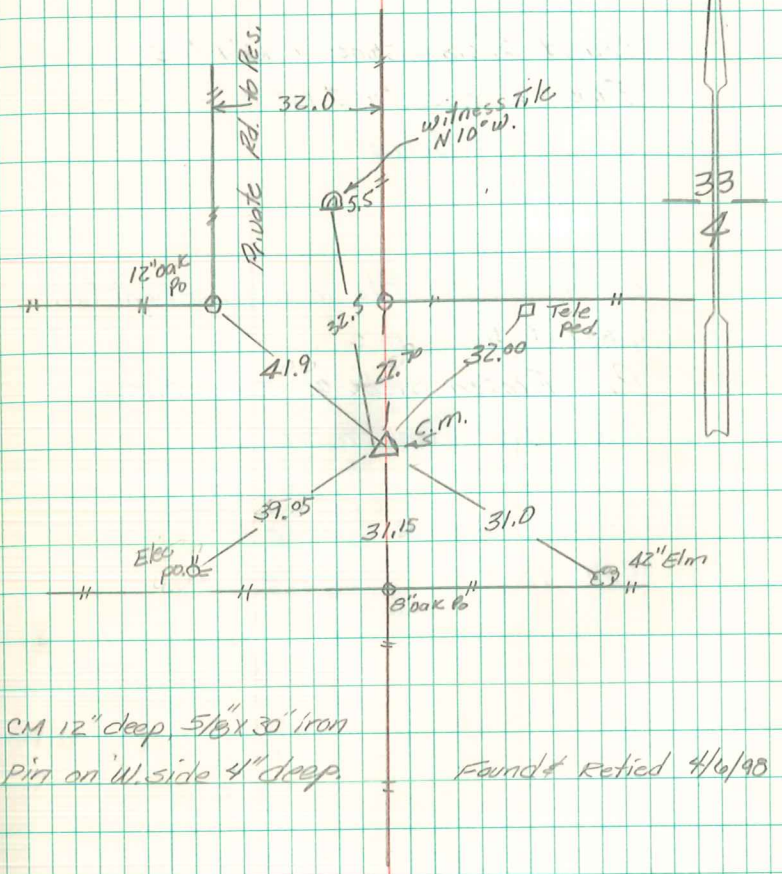 Private Rd. to Res.
32.0
Witness Tile
N 10° W.
5.5
33
4
12" oak
Po
32.5
Tele
ped.
41.9
22.70
32.00
C.M.
39.05
31.15
31.0
Elec
po.
42" Elm
8" oak Po
CM 12" deep, 5/8 x 30" iron
Pin on W. side 4" deep.
Found & Retied 4/6/98